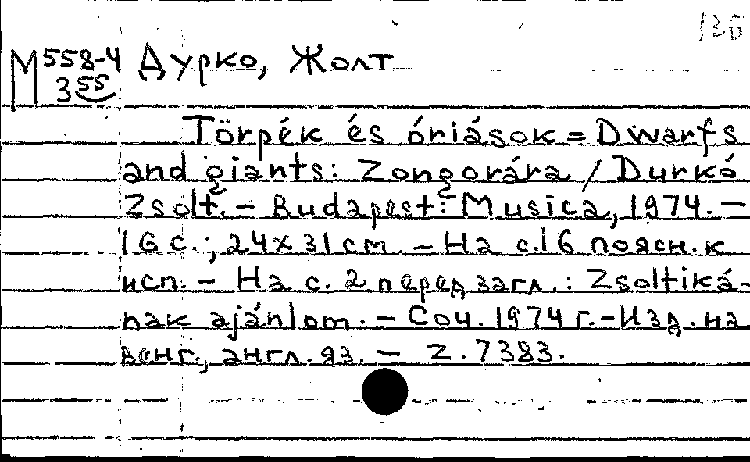 136
М 558-4 Дурко, Жолт
3 55
Törpék és óriások = Dwarfs
and giants: Zongorára / Durkó
Zsolt. - Budapest: Musica, 1974. -
16 с.; 24x31 см. - На с. 16 поясн. к
исп. - На с. 2 перед загл.: Zsoltiká-
nak ajánlom. - Соч. 1974 г. - Изд. на
венг., англ. яз. - Z. 7383.